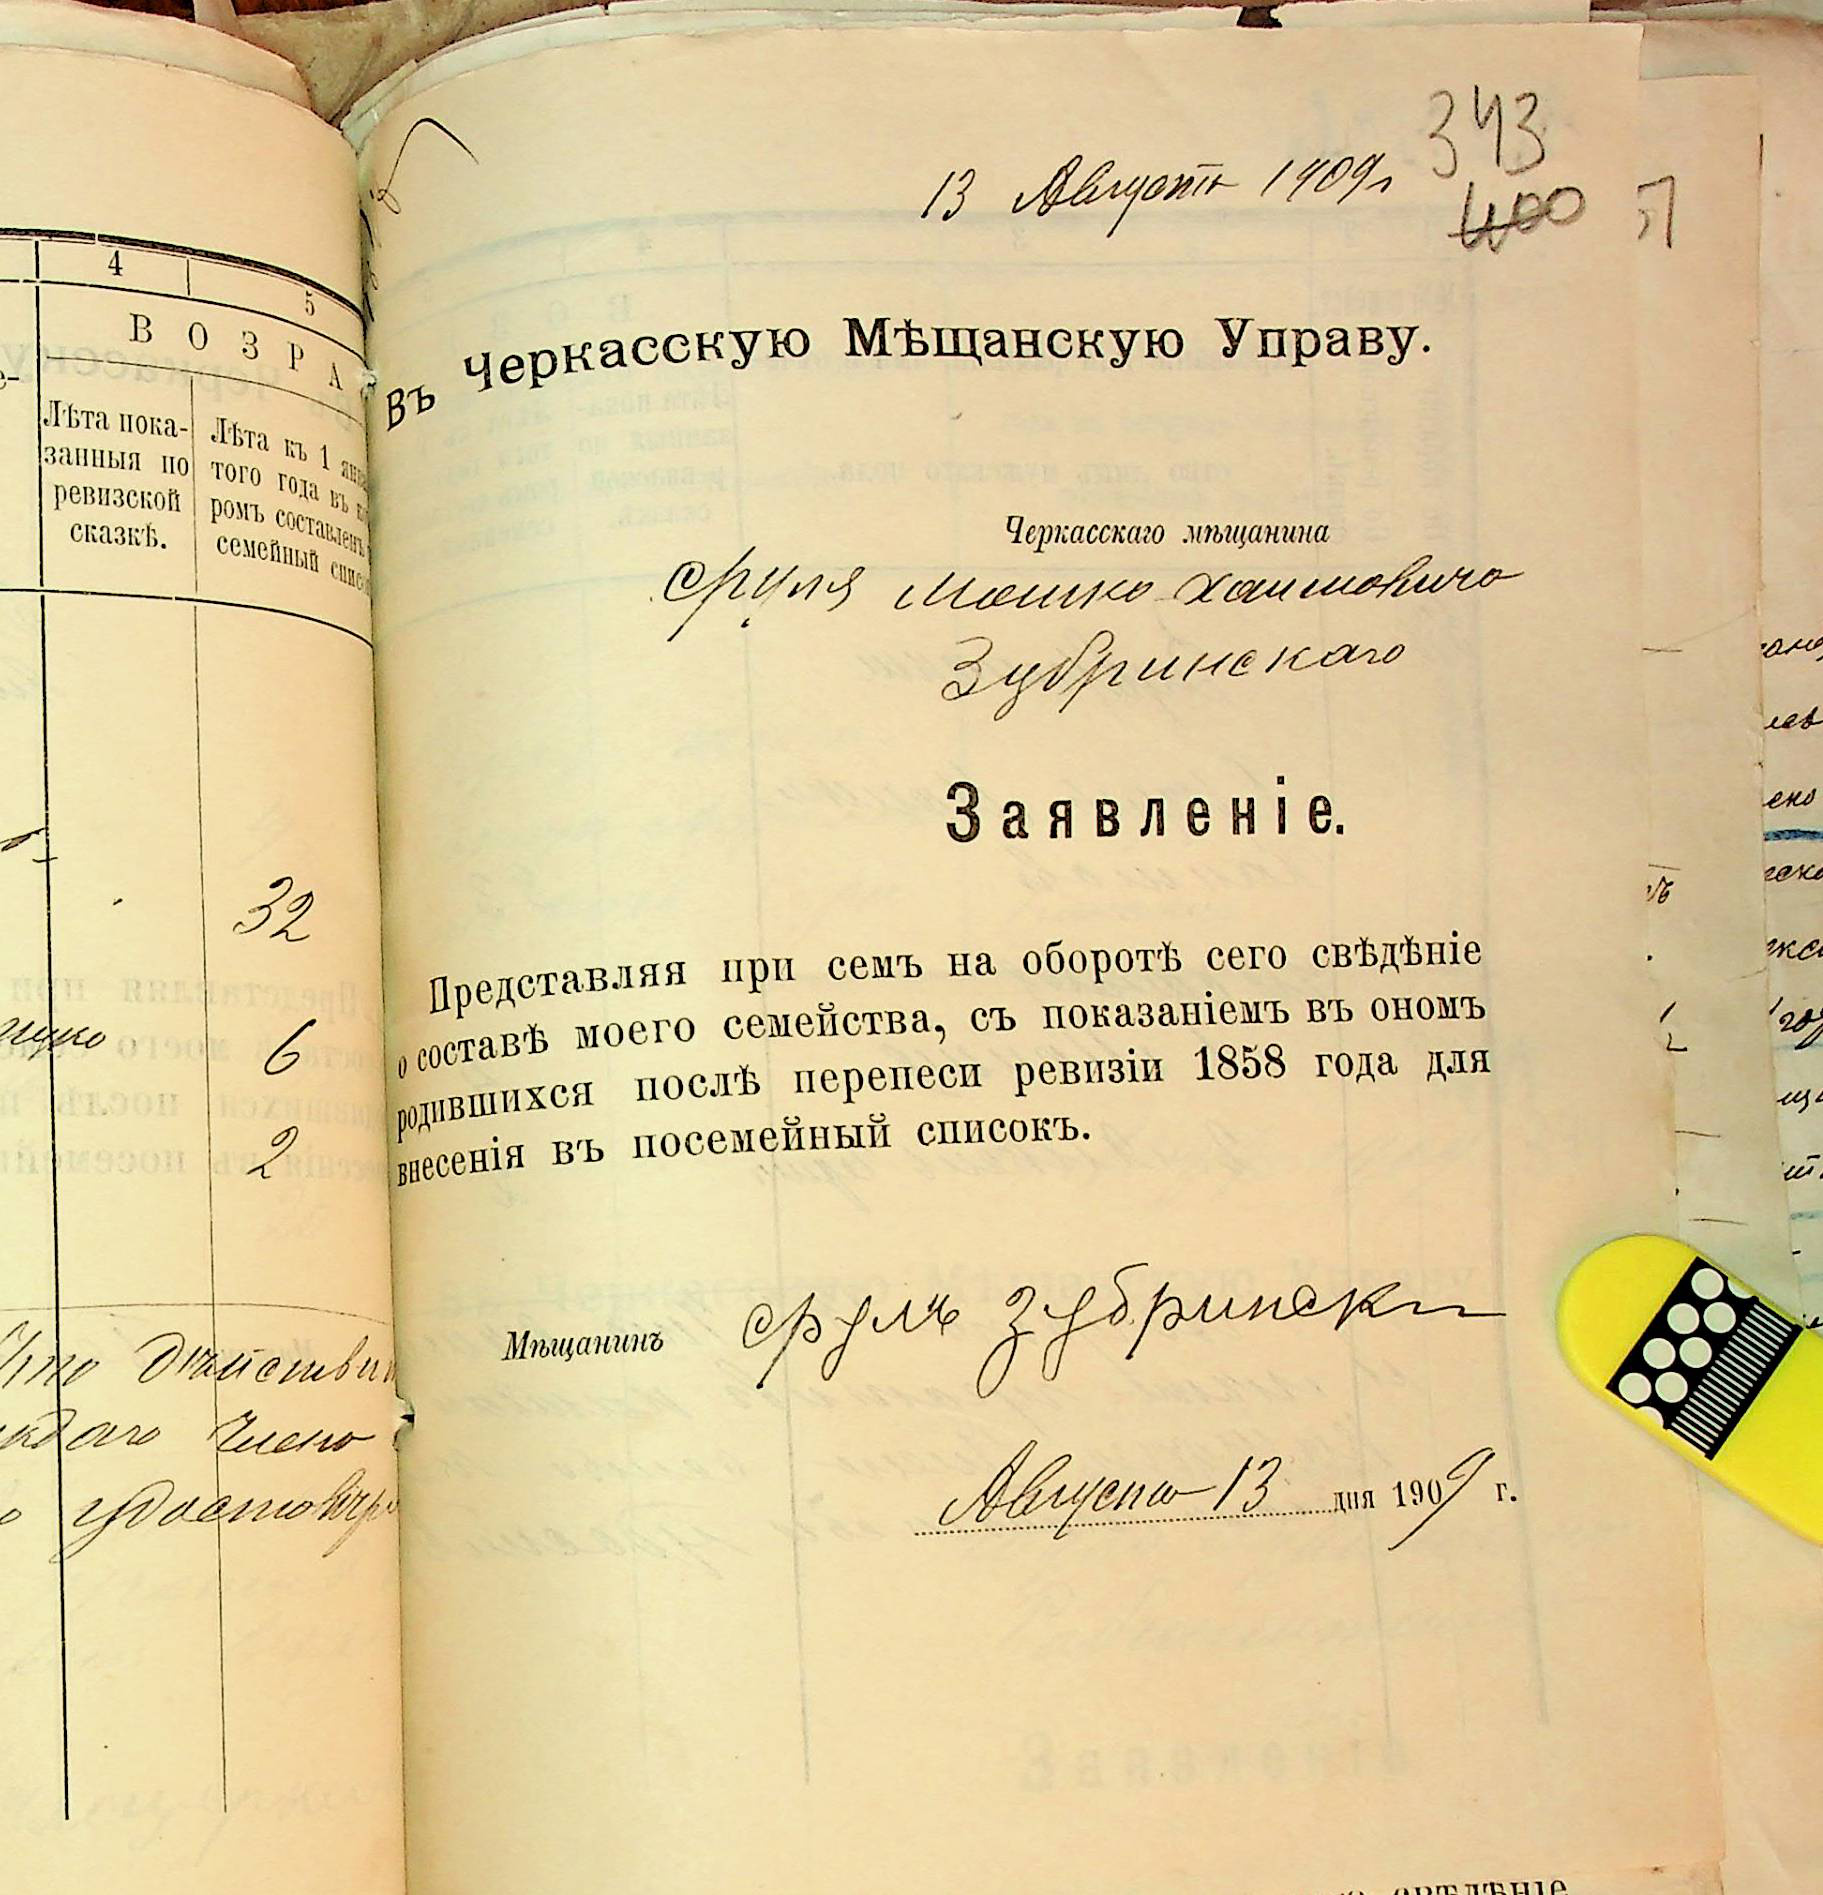 4
5
ВОЗРА
Лѣта пока-
занныя по
ревизской
сказкѣ.
Лѣта къ 1 янв
того года въ к
ромъ составленъ
семейный списо
32
6
2
Что дѣйстви
ждаго члено
удостовѣр
343
13 Августа 1909 г
400
Въ Черкасскую Мѣщанскую Управу.
Черкасскаго мѣщанина
Сруля Мошко-Хаимовича
Зубринскаго
Заявленіе.
Представляя при семъ на оборотѣ сего свѣдѣніе
о составѣ моего семейства, съ показаніемъ въ ономъ
родившихся послѣ перепеси ревизіи 1858 года для
внесенія въ посемейный списокъ.
Мѣщанинъ Сруль Зубрински
Августа 13 дня 1909 г.
свѣдѣніе